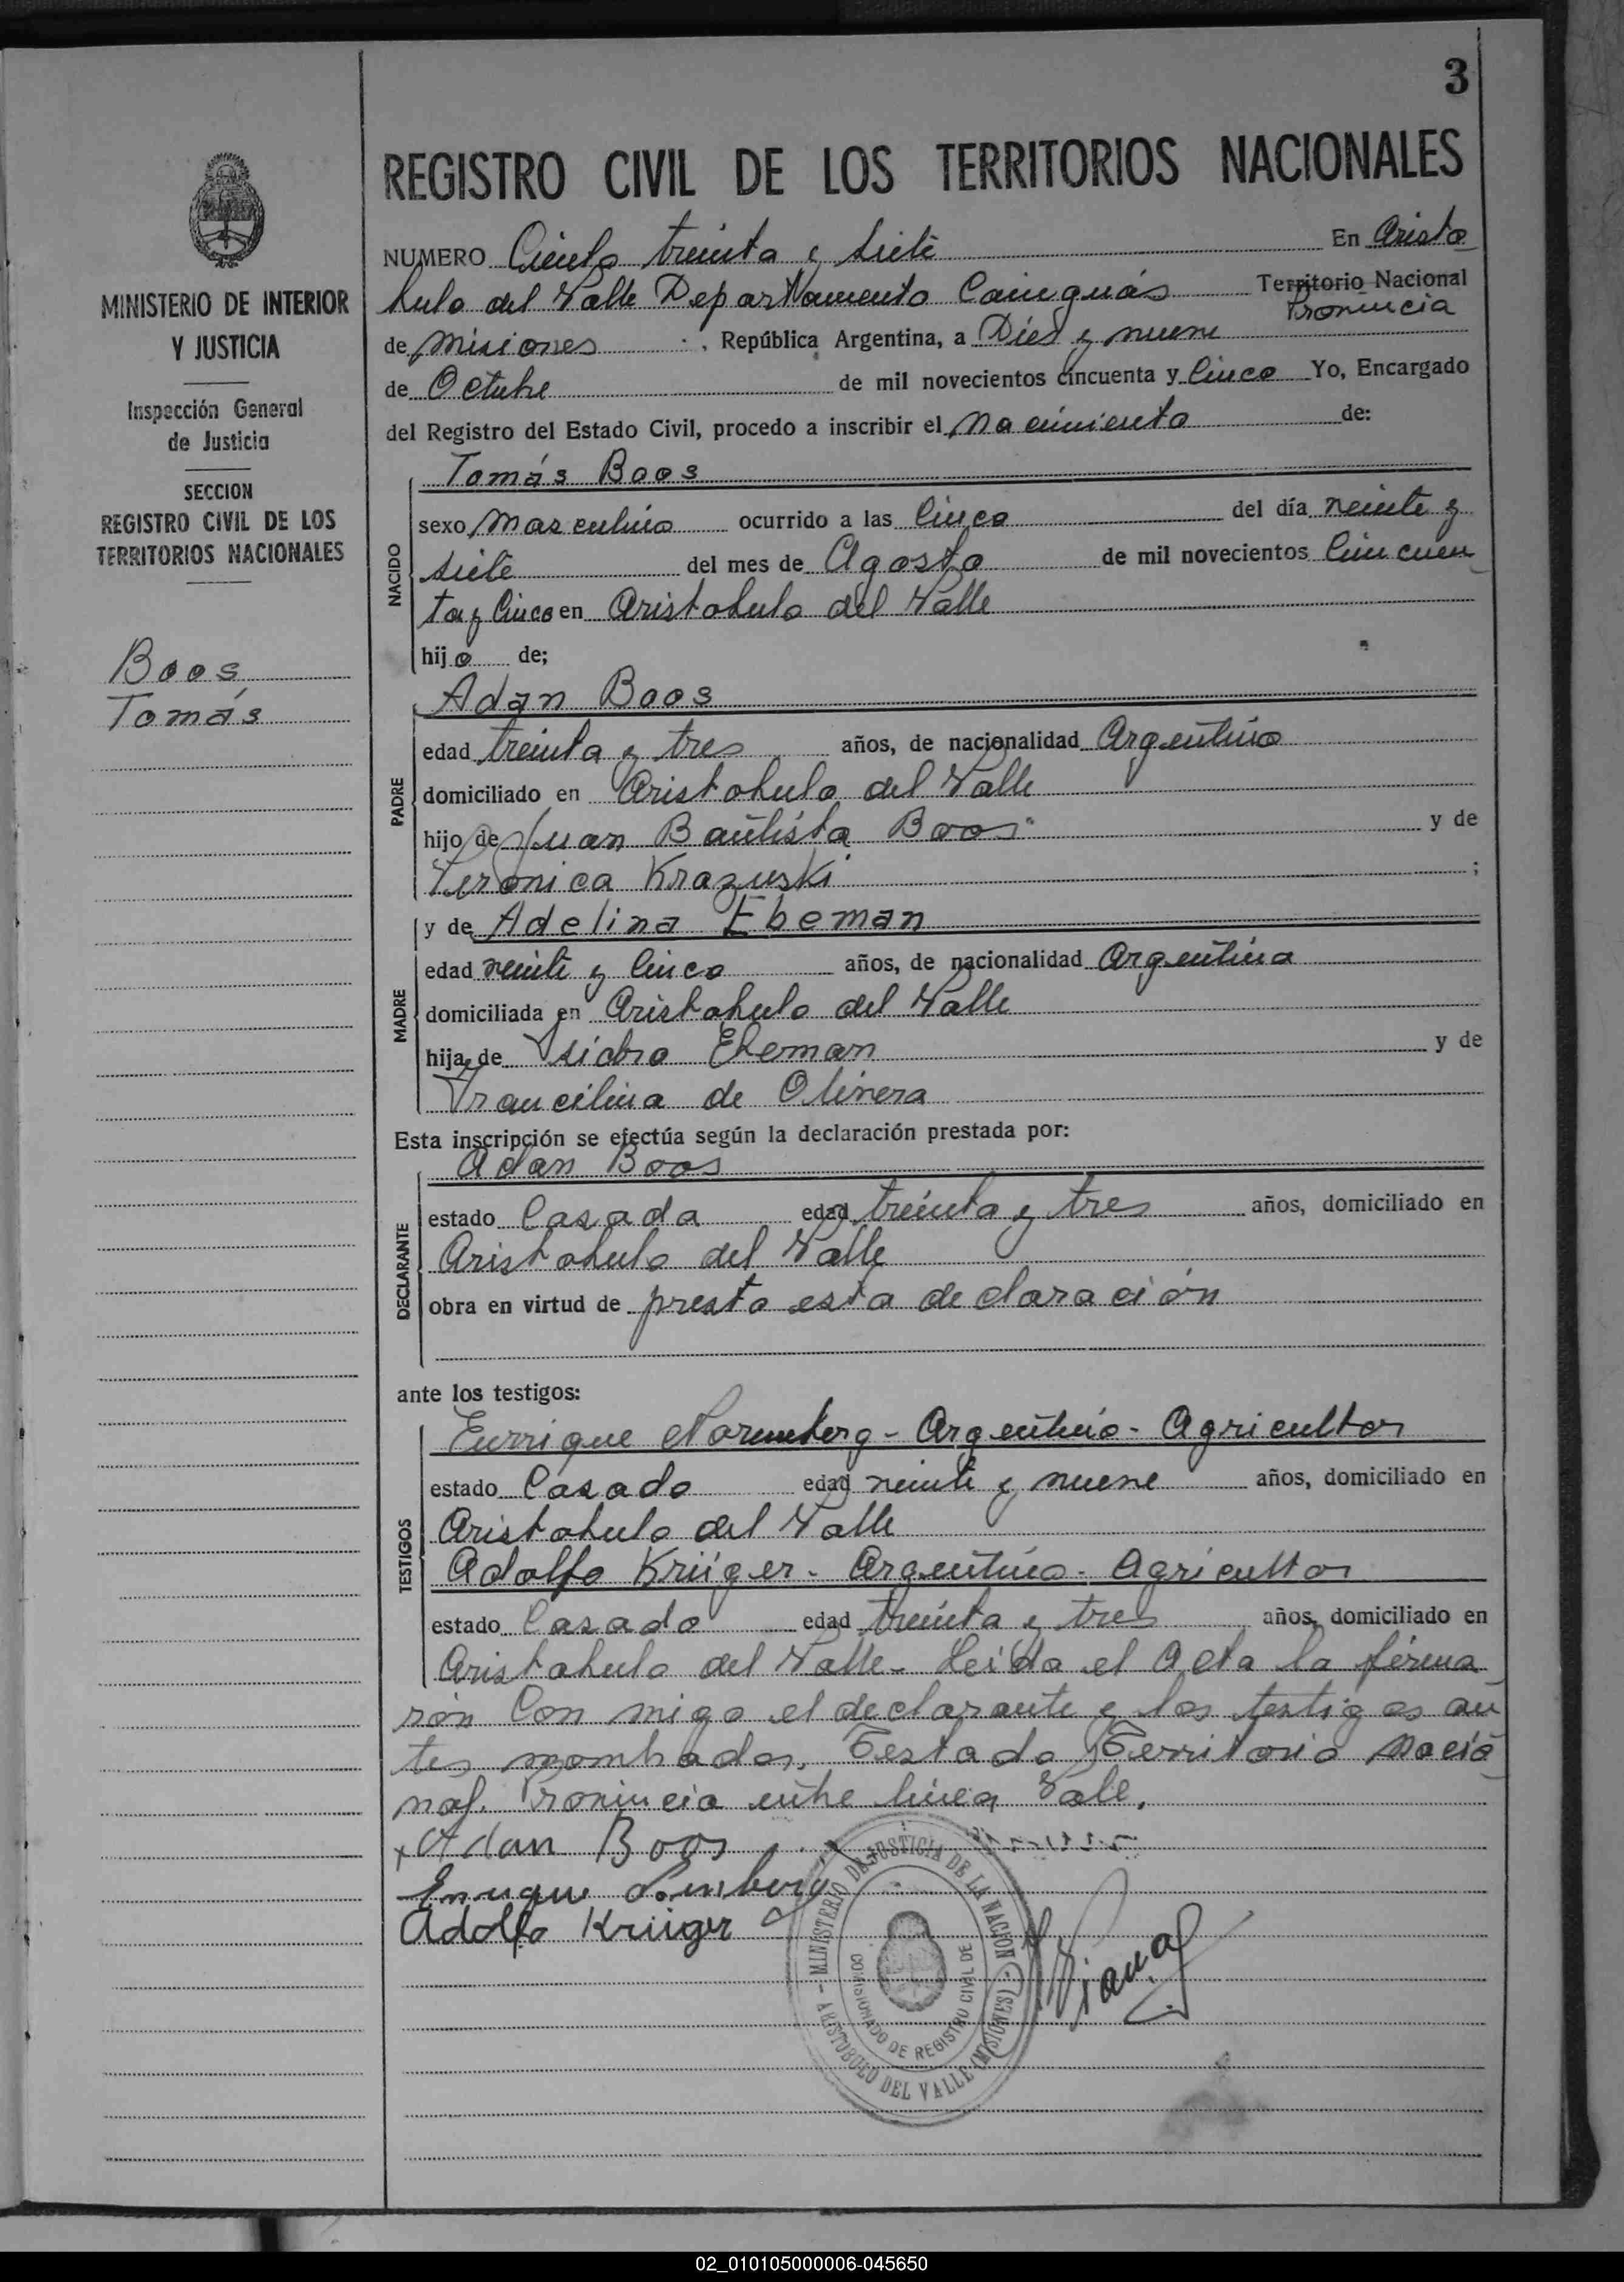 3
REGISTRO CIVIL DE LOS TERRITORIOS NACIONALES
MINISTERIO DE INTERIOR
Y JUSTICIA
Inspección General
de Justicia
SECCION
REGISTRO CIVIL DE LOS
TERRITORIOS NACIONALES
Boos
Tomás
NUMERO Ciento treinta y siete En Aristo
bulo del Valle Departamento Cainguás Territorio Nacional
Provincia
de Misiones, República Argentina, a Diez y nueve
de Octubre de mil novecientos cincuenta y Cinco Yo, Encargado
del Registro del Estado Civil, procedo a inscribir el Nacimiento de:
Tomás Boos
NACIDO
sexo Masculino ocurrido a las Cinco del día veinte y
siete del mes de Agosto de mil novecientos Cincuen
ta y Cinco en Aristobulo del Valle
hijo de;
Adan Boos
PADRE
edad treinta y tres años, de nacionalidad Argentino
domiciliado en Aristobulo del Valle
hijo de Juan Bautista Boos y de
Veronica Krazuski ;
y de Adelina Ebeman
MADRE
edad veinte y Cinco años, de nacionalidad Argentina
domiciliada en Aristobulo del Valle
hija de Isidro Ebeman y de
Francilina de Olivera
Esta inscripción se efectúa según la declaración prestada por:
Adan Boos
DECLARANTE
estado Casada edad treinta y tres años, domiciliado en
Aristobulo del Valle
obra en virtud de presta esta declaración
ante los testigos:
TESTIGOS
Enrrique - Argentino - Agricultor
estado Casado edad veinte y nueve años, domiciliado en
Aristobulo del Valle
Adolfo Krüger - Argentino - Agricultor
estado Casado edad treinta y tres años, domiciliado en
Aristobulo del Valle - Leida el Acta la firma
ron Con migo el declarante y los testigos an
tes nombados. Testado Territorio Nacio
nal. Provincia entre linea Vale.
x Adan Boos
Enrique
Adolfo Krüger
MINISTERIO DE JUSTICIA DE LA NACION
COMISIONADO DE REGISTRO CIVIL DE
ARISTOBULO DEL VALLE (MISIONES)
02_010105000006-045650